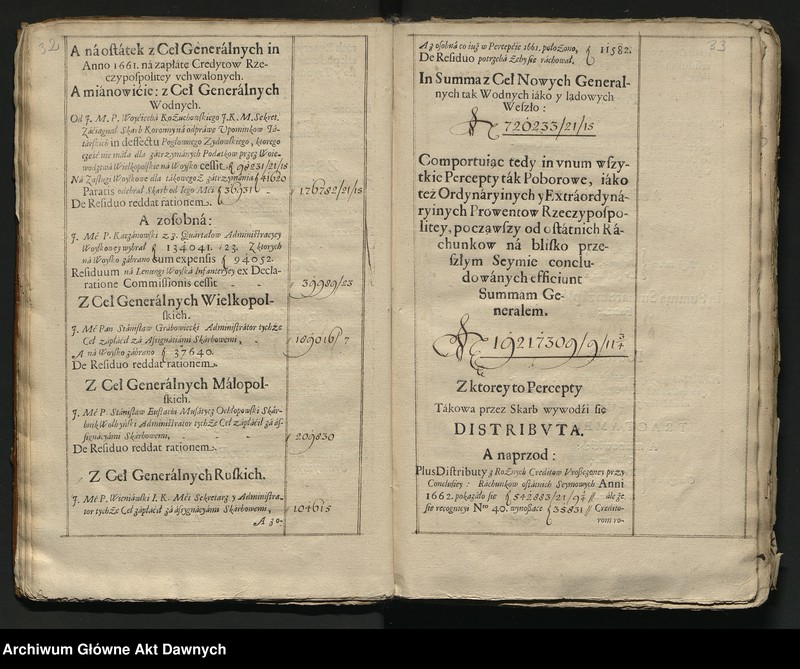 32
A ná ostátek z Ceł Generálnych in
Anno 1661. ná zapłatę Credytow Rze-
czypospolitey vchwalonych.
A miánowićie: z Ceł Generálnych
Wodnych.
Od J. M. P. Woyćiechá Kożuchowskiego J. K. M. Sekret.
Záćiągnął Skarb Koronny ná odpráwę Vpominkow Tá-
társkich in defectu Pogłownego Zydowskiego, ktorego
część nie máła dla zátrzymánych Podatkow przez Woie-
wodztwá Wielkopolskie ná Woysko cessit ʃ 98231/21/15
Ná Zasługi Woyskowe dla tákowegoż zátrzymánia ʃ 41620
Paratis odebrał Skarb od Iego Mći ʃ 36931 - 176782/21/15
De Residuo reddat rationem.
A zosobná:
J. Mć P. Karzánowski z 3. Quartałow Administracyey
Woyskowey wybrał ʃ 134041. /23. Z ktorych
ná Woysko zábrano cum expensis ʃ 94052.
Residuum ná Lenungi Woyská Infanteryey ex Decla-
ratione Commissionis cessit - - 39989/23
Z Ceł Generálnych Wielkopol-
skich.
J. Mć Pan Stánisław Grábowiecki Administrátor tychże
Ceł zápłáćił zá Assignátiámi Skárbowemi, - 189016/7
A ná Woysko zábrano ʃ 37640.
De Residuo reddat rationem.
Z Ceł Generálnych Máłopol-
skich.
J. Mć P. Stánisław Eustachi Musátycz Ochłopowski Skár-
bnik Wołhyński Administrátor tychże Ceł zápłáćił zá ás-
signácyámi Skárbowemi, - - - 209830
De Residuo reddat rationem.
Z Ceł Generálnych Ruskich.
J. Mć P. Wieniáwski I. K. Mći Sekretarz y Administra-
tor tychże Ceł zápłáćił zá ássygnácyámi Skárbowemi, 104615
A zo-
33
A z osobná co iuż w Percepćie 1661. położono, ʃ 11582.
De Residuo potrzebá żeby sie ráchował.
In Summa z Ceł Nowych General-
nych ták Wodnych iáko y lądowych
Weszło:
720233/21/15
Comportuiąc tedy in vnum wszy-
tkie Percepty ták Poborowe, iáko
też Ordynáryinych y Extráordyná-
ryinych Prowentow Rzeczypospo-
litey, począwszy od ostátnich Rá-
chunkow ná blisko prze-
szłym Seymie conclu-
dowánych efficiunt
Summam Ge-
neralem.
19217309/9/11 3/4
Z ktorey to Percepty
Tákowa przez Skarb wywodźi się
DISTRIBVTA.
A naprzod:
Plus Distributy z Rożnych Creditow Vrosłegoney przy
Conclusiey: Ráchunkow ostátnich Seymowych Anni
1662. pokazáło sie ʃ 542883/21/9 3/4 // ále że
sie recognicyi Nro 40. wynoszące ʃ 35831 // Credito-
rom ro-
Archiwum Główne Akt Dawnych